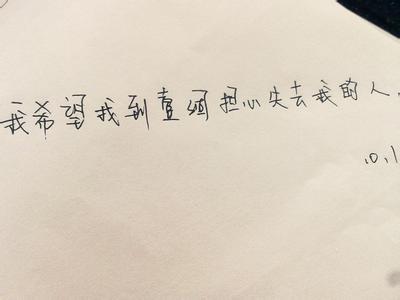 我希望找到壹個担心失去我的人.
10.1